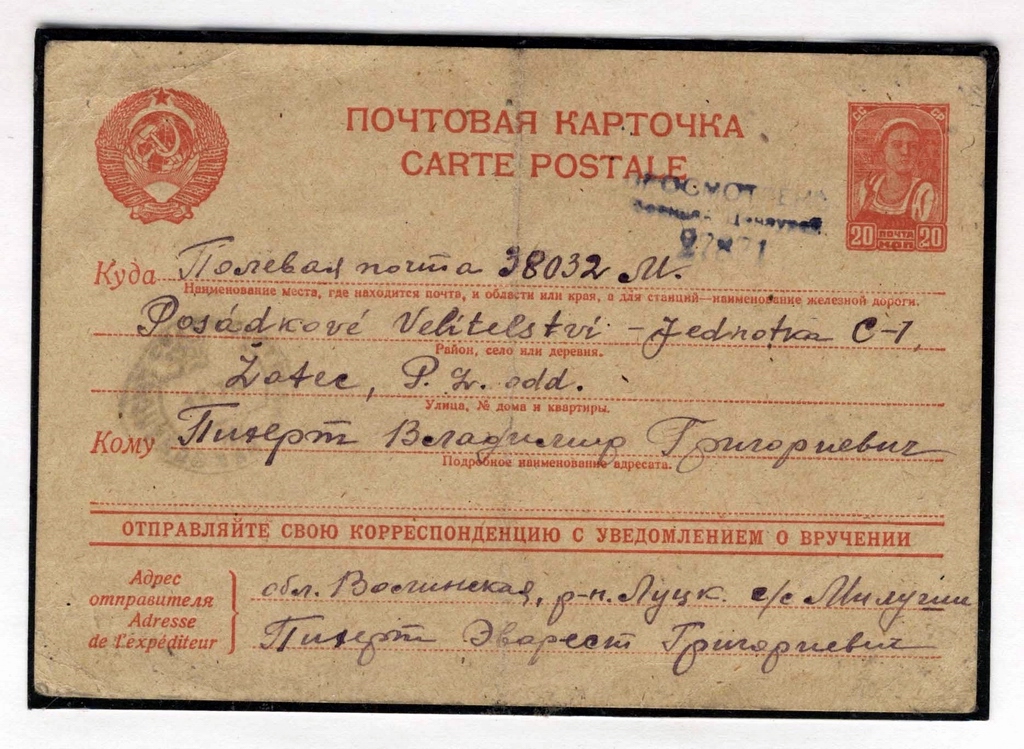 ПОЧТОВАЯ КАРТОЧКА
CARTE POSTALE
СС СР
20 ПОЧТА КОП 20
ПРОСМОТРЕНО
Военной Цензурой
27871
Куда Полевая почта 38032 М.
Наименование места, где находится почта, и области или края, а для станций—наименование железной дороги.
Posádkové Velitelství - Jednotka C-1,
Район, село или деревня.
Žatec, P. Z. odd.
Улица, № дома и квартиры.
Кому Пизерт Владимир Григориевич
Подробное наименование адресата.
ОТПРАВЛЯЙТЕ СВОЮ КОРРЕСПОНДЕНЦИЮ С УВЕДОМЛЕНИЕМ О ВРУЧЕНИИ
Адрес
отправителя
Adresse
de l'expéditeur
обл. Волинская, р-н. Луцк. с/с Милуши
Пизерт Эварест Григориевич